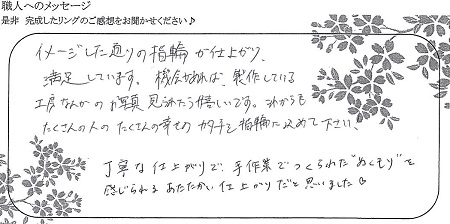 職人へのメッセージ
是非 完成したリングのご感想をお聞かせください♪
イメージした通りの指輪が仕上がり、
満足しています。機会があれば、製作している
工房なんかの写真見られたら嬉しいです。これからも
たくさんの人のたくさんの幸せのカタチを指輪に込めて下さい。
丁寧な仕上がりで、手作業でつくられた"ぬくもり"を
感じられるあたたかい仕上がりだと思いました